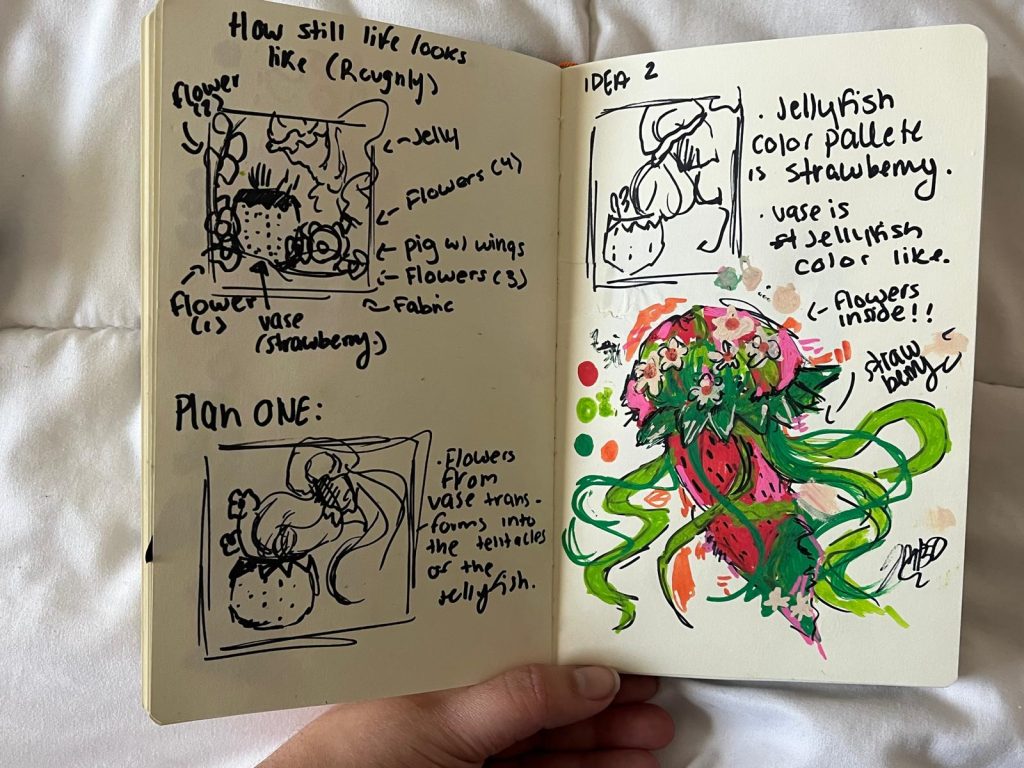 How still life looks
like (Roughly)
flower
(2)
Jelly
Flowers (4)
pig w/ wings
Flowers (3)
Fabric
flower
(1)
vase
(strawberry.)
Plan ONE:
. Flowers
from
vase trans-
forms into
the tentacles
of the
Jellyfish.
IDEA 2
. Jellyfish
color pallete
is strawberry.
. vase is
Jellyfish
color like.
flowers
inside!!
straw
berry